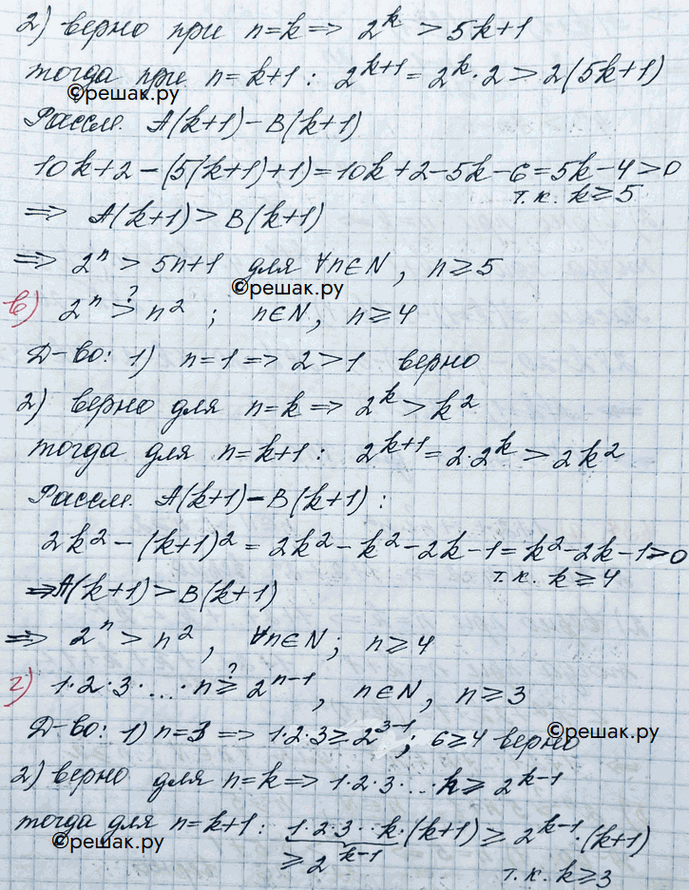 2) верно при n=k => 2^k > 5k+1
тогда при n=k+1: 2^{k+1} = 2^k·2 > 2(5k+1)
©решак.ру
Рассм. A(k+1)-B(k+1)
10k+2-(5(k+1)+1)=10k+2-5k-6=5k-4>0
т.к. k≥5
=> A(k+1)>B(k+1)
=> 2^n > 5n+1 для ∀n∈N, n≥5
©решак.ру
в) 2^n >? n^2 ; n∈N, n≥4
Д-во: 1) n=1 => 2>1 верно
2) верно для n=k => 2^k > k^2
тогда для n=k+1: 2^{k+1} = 2·2^k > 2k^2
Рассм. A(k+1)-B(k+1):
2k^2-(k+1)^2 = 2k^2-k^2-2k-1 = k^2-2k-1>0
т.к. k≥4
=> A(k+1)>B(k+1)
=> 2^n > n^2, ∀n∈N; n≥4
г) 1·2·3·...·n ≥? 2^{n-1}, n∈N, n≥3
Д-во: 1) n=3 => 1·2·3≥2^{3-1}; 6≥4 верно
©решак.ру
2) верно для n=k => 1·2·3·...k≥2^{k-1}
тогда для n=k+1: 1·2·3··k·(k+1) ≥ 2^{k-1}·(k+1)
©решак.ру
≥2^{k-1} т.к. k≥3